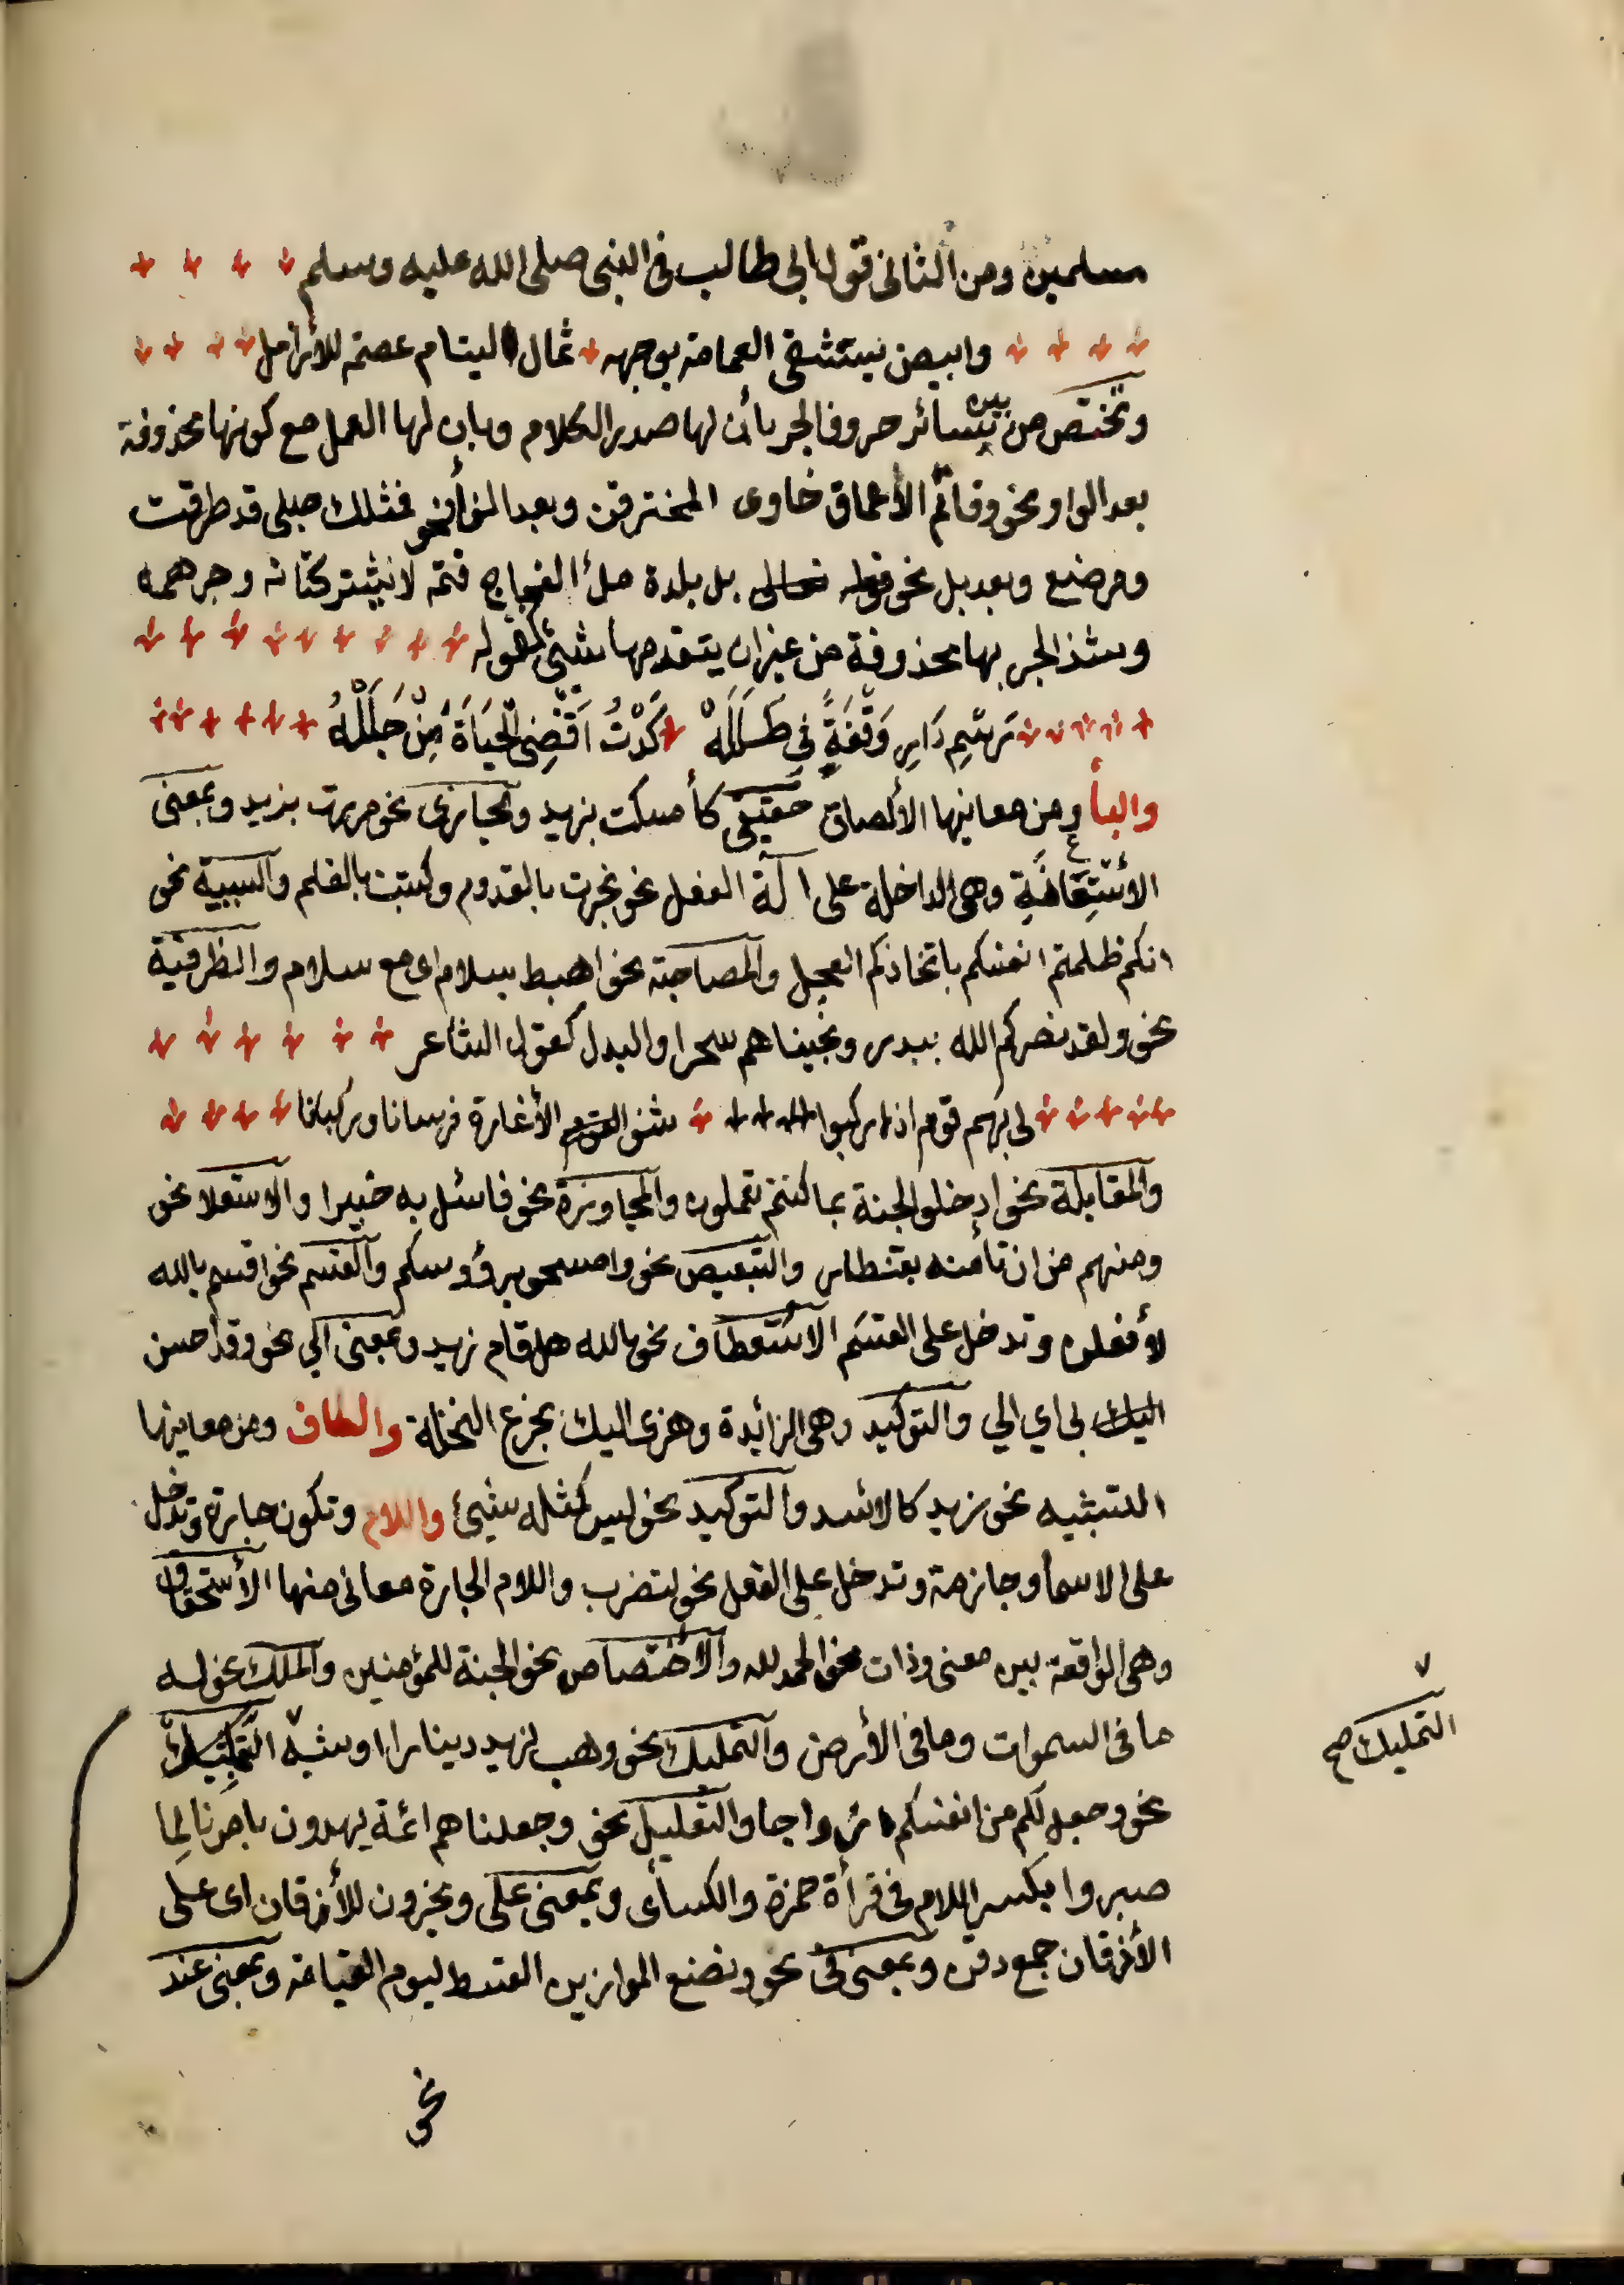 مسلمين ومن الثاني قول ابي طالب في النبي صلى الله عليه وسلم
وابيض يستشقى الغمامة بوجهه ثمال اليتام عصمة للأرامل
وتختص من بين سائر حروف الجر بأن لها صدر الكلام وبان لها العمل مع كونها محذوفة
بعد الواو نحو وقاتم الأعماق خاوى المخترقن وبعد الفأ نحو فمثلك حبلى قد طرقت
ومرضع وبعد بل نحو قوله تعالى بل بلدة ملأ الفجاج قتمه لا يشتر كتانه وجرهمه
وشذ الجر بها محذوفة من غير ان يتقدمها شئ كقوله
رَسْمِ دَارٍ وَقَفْةٍ فِي طَلَلَهْ كَدْتُ اَقْضِى الْحَيَاةَ مِنْ جَلَلْهُ
والبأ ومن معانيها الألصاق حقيقي كأمسكت بزيد ومجازى نحو مررت بزيد وبمعنى
الأستعانة وهى الداخلة على آلة الفعل نحو نجرت بالقدوم وكتبت بالقلم والسببية نحو
انكم ظلمتم انفسكم باتخاذكم العجل والمصاحبة نحو اهبط بسلام اى مع سلام والظرفية
نحو ولقد نصركم الله ببدر ونجيناهم بسحر والبدل كقول الشاعر
لى بهم قوم اذا ركبوا شنو الأغارة فرسانا وركبانا
والمقابلة نحو ادخلو الجنة بما كنتم تعملون والمجاوزة نحو فاسئل به خبيرا والاستعلا نحو
ومنهم من ان تأمنه بقنطار والتبعيض نحو وامسحو برؤوسكم والقسم نحو اقسم بالله
لأفعلن وتدخل على القسم الاستعطاف نحو بالله هل قام زيد وبمعنى الي نحو وقد أحسن
اليك بي اي الي والتوكيد وهى الزائدة وهزى اليك بجزع النخلة والكاف ومن معانيها
التشبيه نحو زيد كالاسد والتوكيد نحو ليس كمثله شيئ واللام وتكون جارة وتدخل
على الاسمأ وجازمة وتدخل على الفعل نحو لتضرب واللام الجارة معانى منها الأستحقاق
وهى الواقعة بين معنى وذات نحو الحمد لله والأختصاص نحو الجنة للمؤمنين والملك نحو له
ما فى السموات وما فى الأرض والتمليك نحو وهب لزيد دينارا او شبه التمليك
نحو وجعل لكم من انفسكم ازواجا والتعليل نحو وجعلناهم ائمة يهدون بامرنا لِما
صبروا بكسر اللام فى قرأة حمزة والكسأى وبمعنى على ويخرون للأذقان اى على
الأذقان جمع دقن وبمعنى فى نحو ونضع الموازين القسط ليوم القيامة وبمعنى عند
نحو
٧
التمليك صح